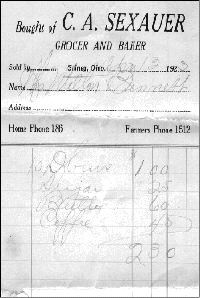 Bought of C. A. SEXAUER
GROCER AND BAKER
Sold by Sidney, Ohio, 192
Name
Address
Home Phone 186 Farmers Phone 1512
$ 1 00
Sugar 25
Butter 60
Coffee 45
2 30